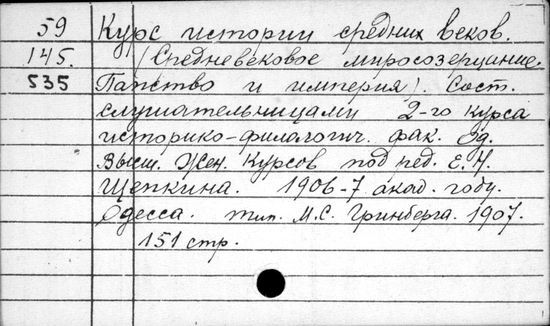 59 Курс истории средних веков.
145. (Средневековое миросозерцание.
535 Папство и империя). Сост.
слушательницами 2-го курса
историко-филологич. фак. Од.
Высш. Жен. Курсов под ред. Е.Н.
Щепкина. 1906-7 акад. году.
Одесса. тип. М.С. Гринберга. 1907.
151 стр.